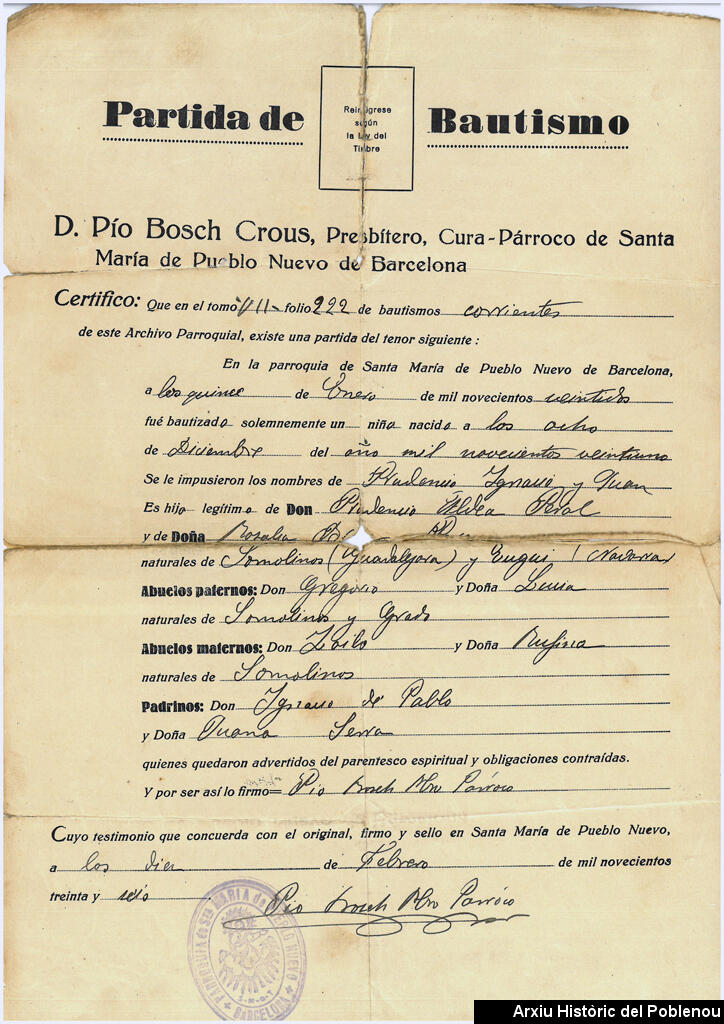 Partida de Bautismo
Reintégrese
según
la Ley del
Timbre
D. Pío Bosch Crous, Presbítero, Cura-Párroco de Santa
María de Pueblo Nuevo de Barcelona
Certifico: Que en el tomo VII folio 222 de bautismos corrientes
de este Archivo Parroquial, existe una partida del tenor siguiente:
En la parroquia de Santa María de Pueblo Nuevo de Barcelona,
a los quince de Enero de mil novecientos veintidos
fué bautizado solemnemente un niño nacido a los ocho
de Diciembre del año mil novecientos veintiuno
Se le impusieron los nombres de Prudencio Ignacio y Juan
Es hijo legítimo de Don Prudencio Aldea Peral
y de Doña Rosalia
naturales de Somolinos (Guadalajara) y Eugui (Navarra)
Abuelos paternos: Don Gregorio y Doña Lucia
naturales de Somolinos y Grado
Abuelos maternos: Don Zoilo y Doña Rufina
naturales de Somolinos
Padrinos: Don Ignacio de Pablo
y Doña Juana Serra
quienes quedaron advertidos del parentesco espiritual y obligaciones contraídas.
Y por ser así lo firmo = Pio Bosch Pbro Párroco
Cuyo testimonio que concuerda con el original, firmo y sello en Santa María de Pueblo Nuevo,
a los diez de Febrero de mil novecientos
treinta y seis
Pio Bosch Pbro Párroco
PARROQUIA de Sta MARIA de PUEBLO NUEVO
BARCELONA
Arxiu Històric del Poblenou